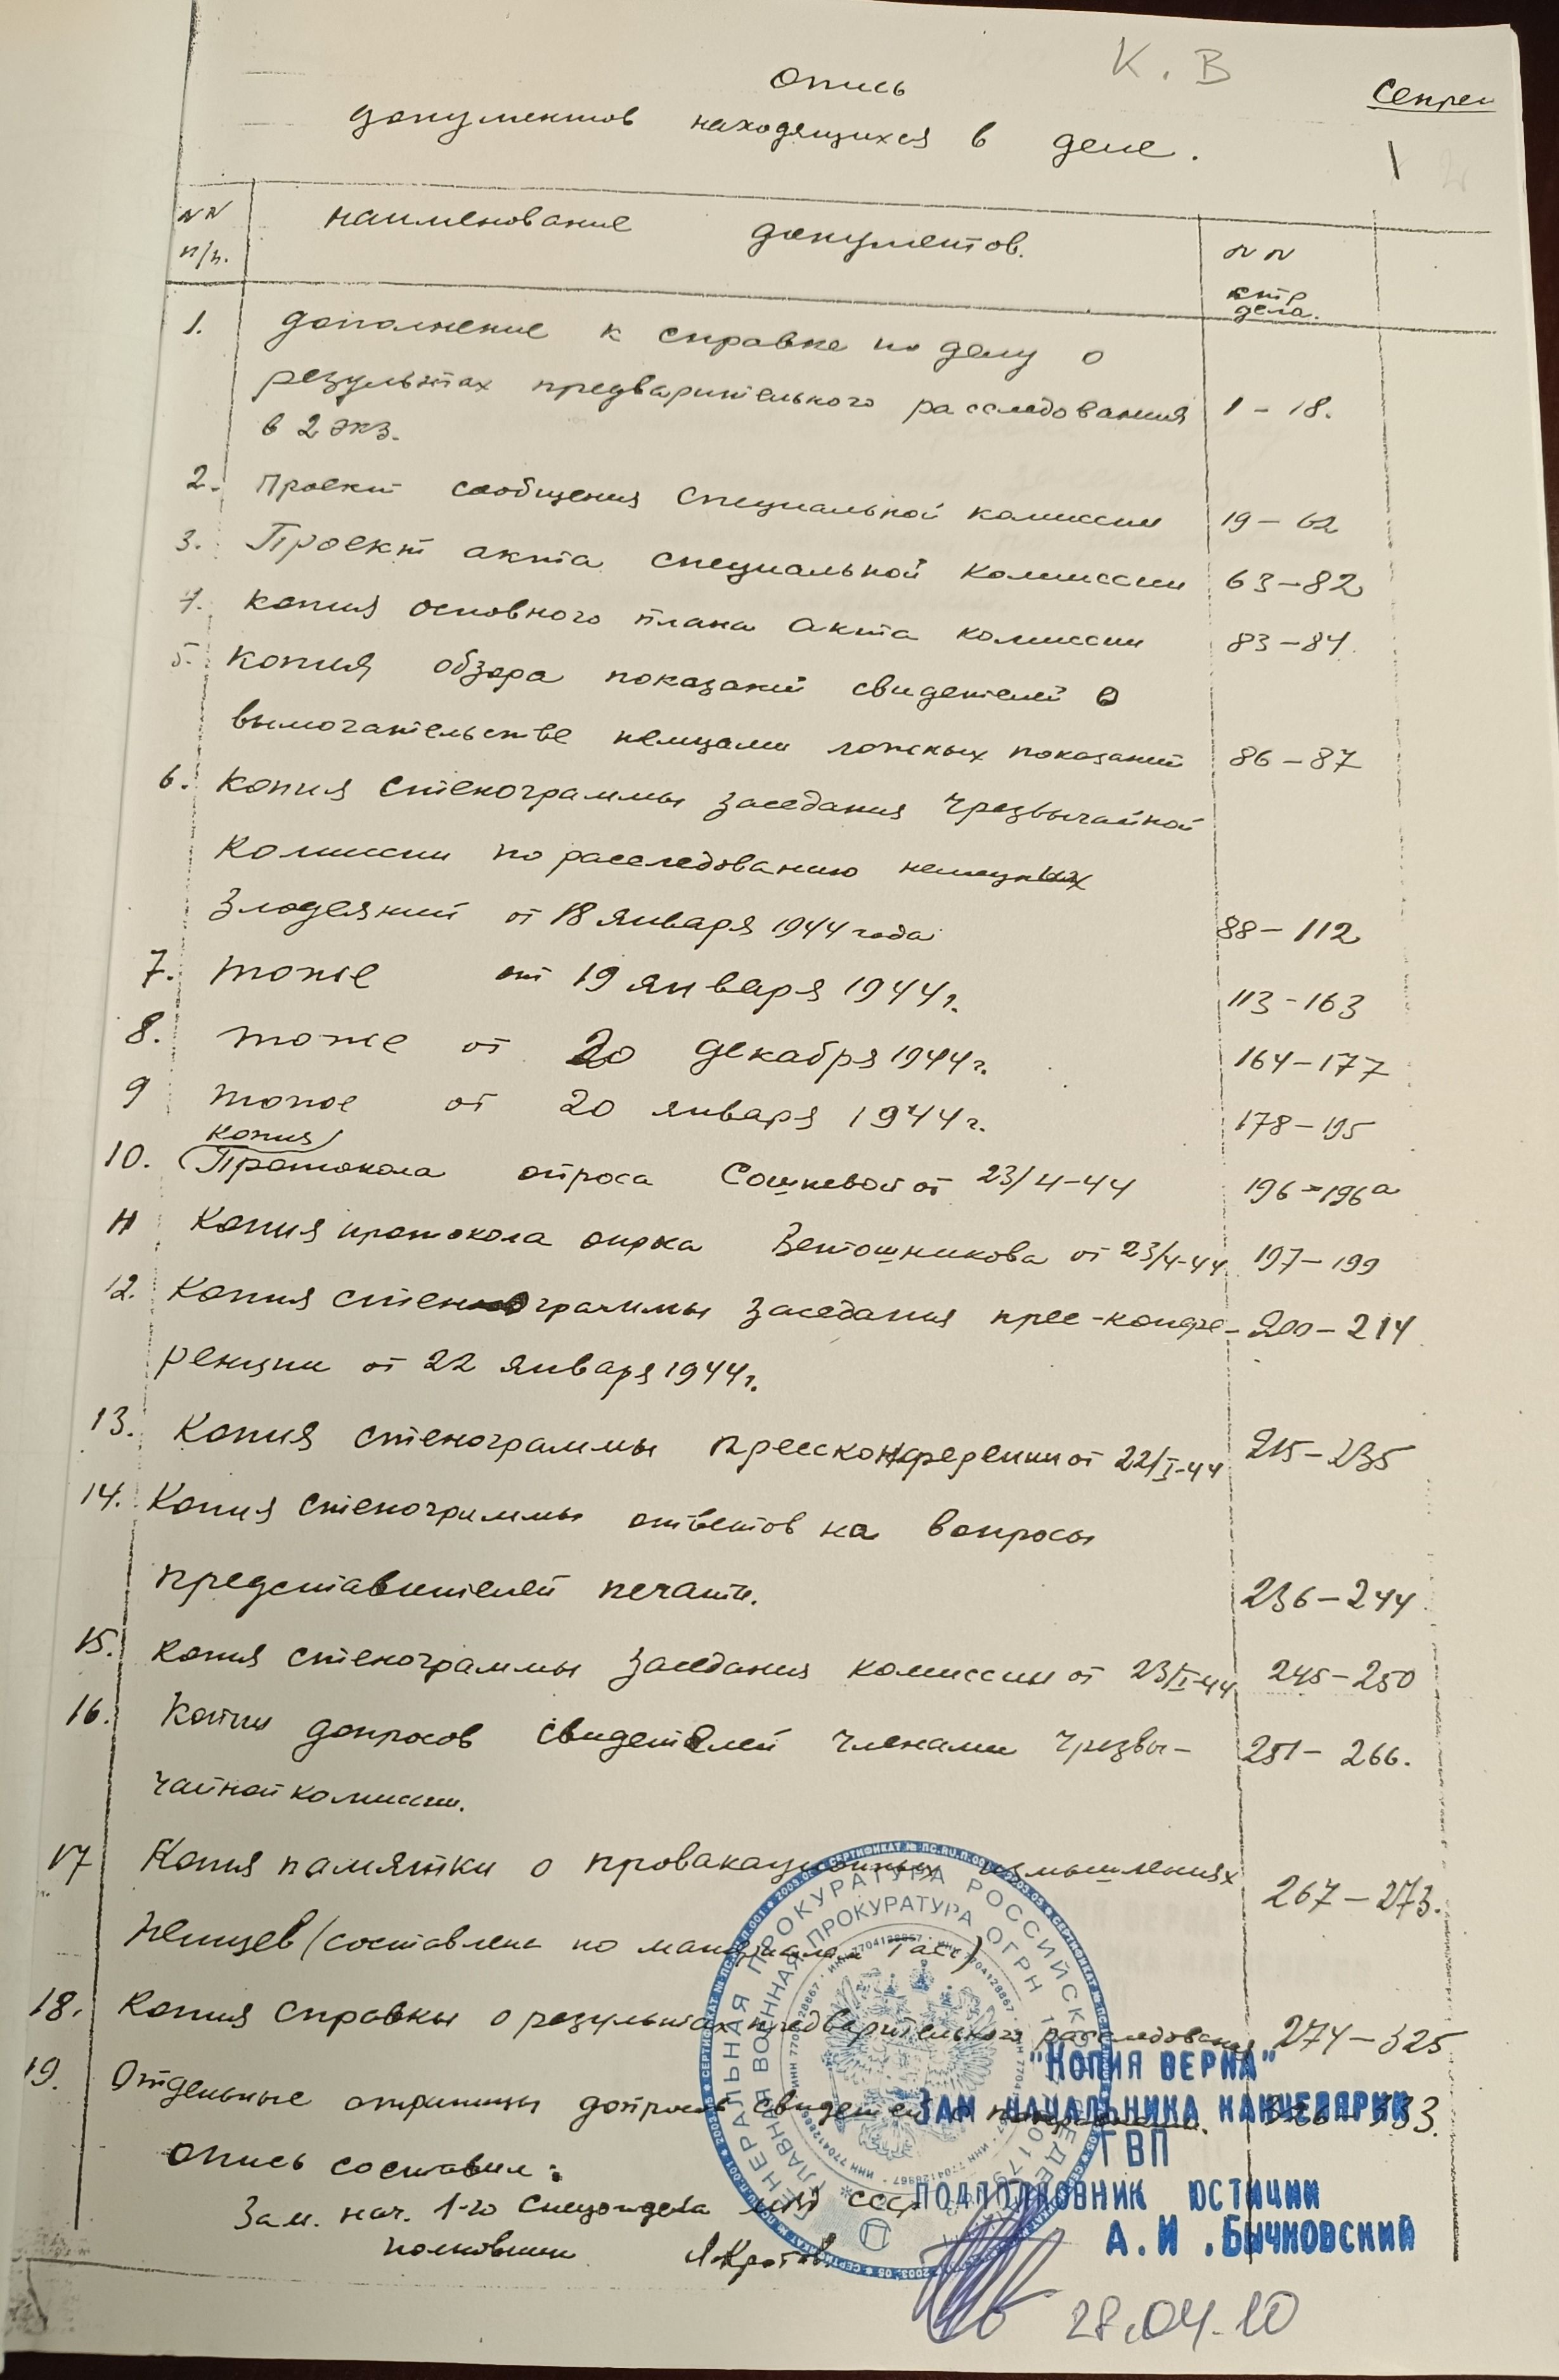 К. В
Опись
Секрет
документов находящихся в деле.
1
NN
п/п.
наименование документов.
NN
стр
дела.
1. Дополнение к справке по делу о
результатах предварительного расследования
в 2 экз.
1 – 18.
2. Проект сообщения специальной комиссии 19 – 62
3. Проект акта специальной комиссии 63 – 82
4. Копия основного плана акта комиссии 83 – 84.
5. Копия обзора показаний свидетелей о
вымогательстве немцами ложных показаний 86 – 87
6. Копия стенограммы заседания Чрезвычайной
комиссии по расследованию немецких
злодеяний от 18 января 1944 года 88 – 112
7. тоже от 19 января 1944 г. 113 – 163
8. тоже от 20 декабря 1944 г. 164 – 177
9 тоже от 20 января 1944 г. 178 – 195
копия
10. Протокола опроса Сошневой от 23/4-44 196 – 196а
11 Копия протокола опроса Ветошникова от 23/4-44 197 – 199
12. Копия стенограммы заседания прес-конфе- 200 – 214
ренции от 22 января 1944 г.
13. Копия стенограммы прессконференции от 22/I-44 215 – 235
14. Копия стенограммы ответов на вопросы
представителей печати. 236 – 244
15. Копия стенограммы заседания комиссии от 23/I-44 245 – 250
16. Копии допросов свидетелей членами чрезвы- 251 – 266.
чайной комиссии.
17 Копия памятки о провакационных измышлениях 267 – 273.
немцев (составлена по материалам Тасс)
18. Копия справки о результатах предварительного расследования 274 – 325
19. Отдельные страницы допросов свидетелей 326 – 333.
Опись составил:
Зам. нач. 1-го Спецотдела МВД СССР
полковник Я.Кротов
ГЕНЕРАЛЬНАЯ ПРОКУРАТУРА РОССИЙСКОЙ ФЕДЕРАЦИИ
ГЛАВНАЯ ВОЕННАЯ ПРОКУРАТУРА ОГРН
ИНН 7704128867
"КОПИЯ ВЕРНА"
ЗАМ НАЧАЛЬНИКА КАНЦЕЛЯРИИ
ГВП
ПОДПОЛКОВНИК ЮСТИЦИИ
А.И.БЫЧКОВСКИЙ
28.04.10